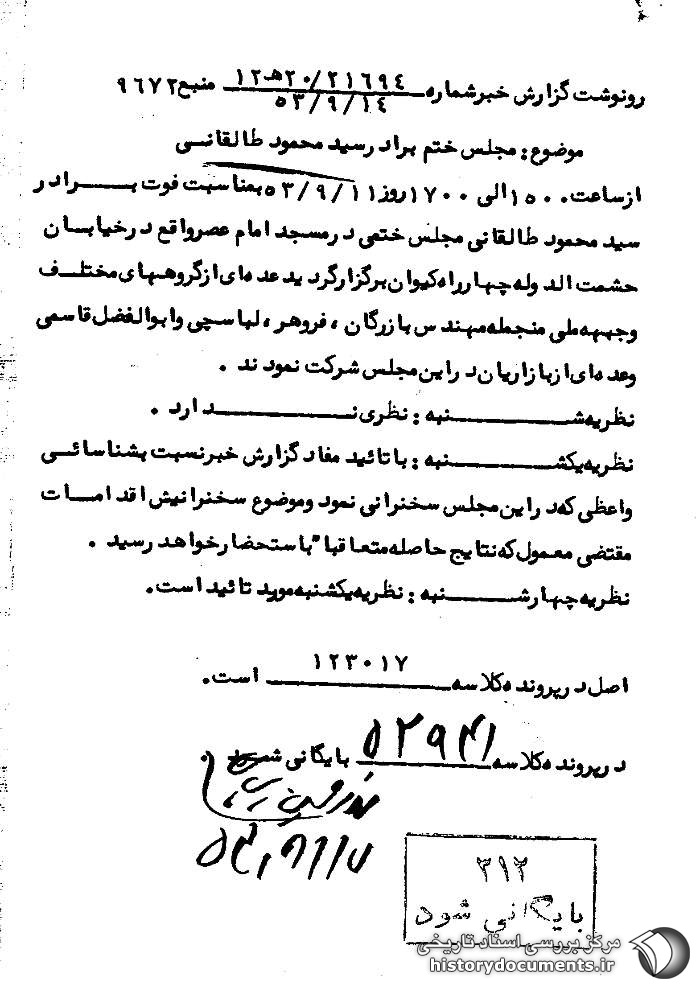 رونوشت گزارش خبر شماره ۲۰/۲۱۶۹۴هـ۱۲ منبع ۹۶۷۲
۵۳/۹/۱۴
موضوع : مجلس ختم برادر سید محمود طالقانی
از ساعت ۱۵۰۰ الی ۱۷۰۰ روز ۵۳/۹/۱۱ بمناسبت فوت برادر
سید محمود طالقانی مجلس ختمی در مسجد امام عصر واقع در خیابان
حشمت الدوله چهارراه کیوان برگزار گردید عده ای از گروههای مختلف
وجبهه ملی منجمله مهندس بازرگان ، فروهر ، لباسچی وابوالفضل قاسمی
وعده ای از بازاریان در این مجلس شرکت نمودند .
نظریه شنبه : نظری ندارد .
نظریه یکشنبه : با تائید مفاد گزارش خبر نسبت بشناسائی
واعظی که در این مجلس سخنرانی نمود وموضوع سخنرانیش اقدامات
مقتضی معمول که نتایج حاصله متعاقبا" باستحضار خواهد رسید .
نظریه چهارشنبه : نظریه یکشنبه مورد تائید است .
اصل در پرونده کلاسه ۱۲۳۰۱۷ است .
در پرونده کلاسه ۵۲۹۴۱ بایگانی شود .
۵۳/۹/۱۷
۳۱۲
بایگانی شود
مرکز بررسی اسناد تاریخی
historydocuments.ir